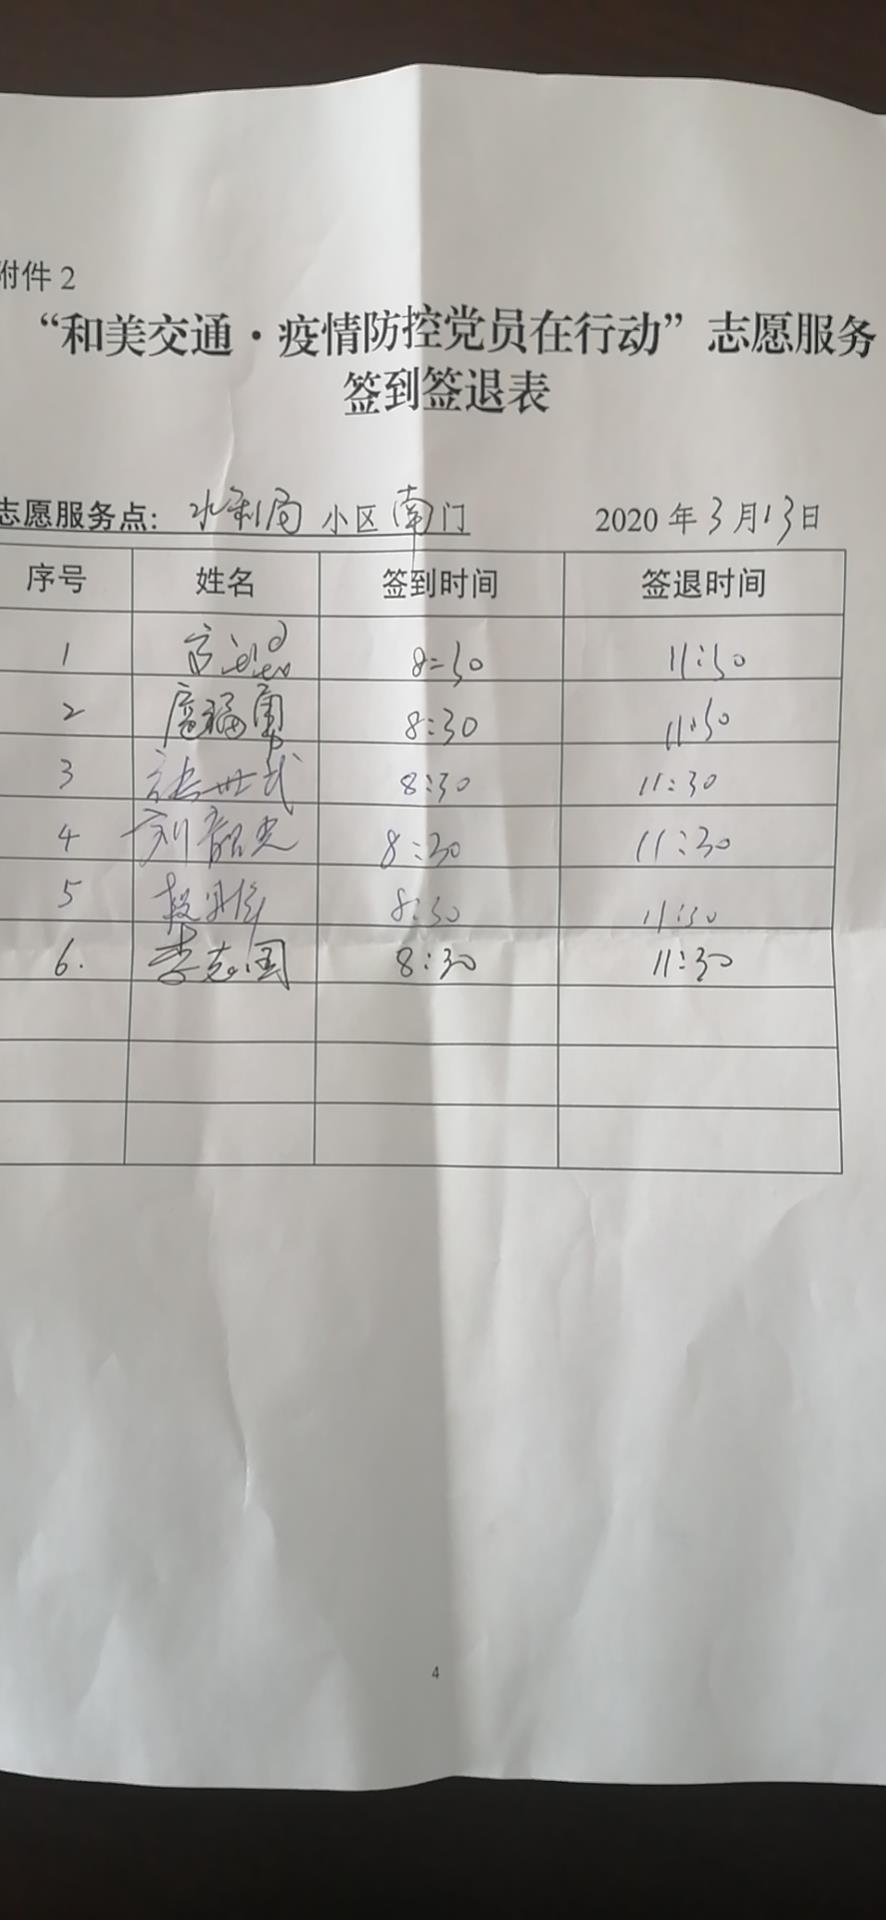 附件2
“和美交通·疫情防控党员在行动”志愿服务
签到签退表
志愿服务点: 水利局 小区 南门 2020年3月13日
序号 姓名 签到时间 签退时间
1 8:30 11:30
2 福勇 8:30 11:30
3 张世武 8:30 11:30
4 刘韶光 8:30 11:30
5 8:30 11:30
6. 李志国 8:30 11:30
4